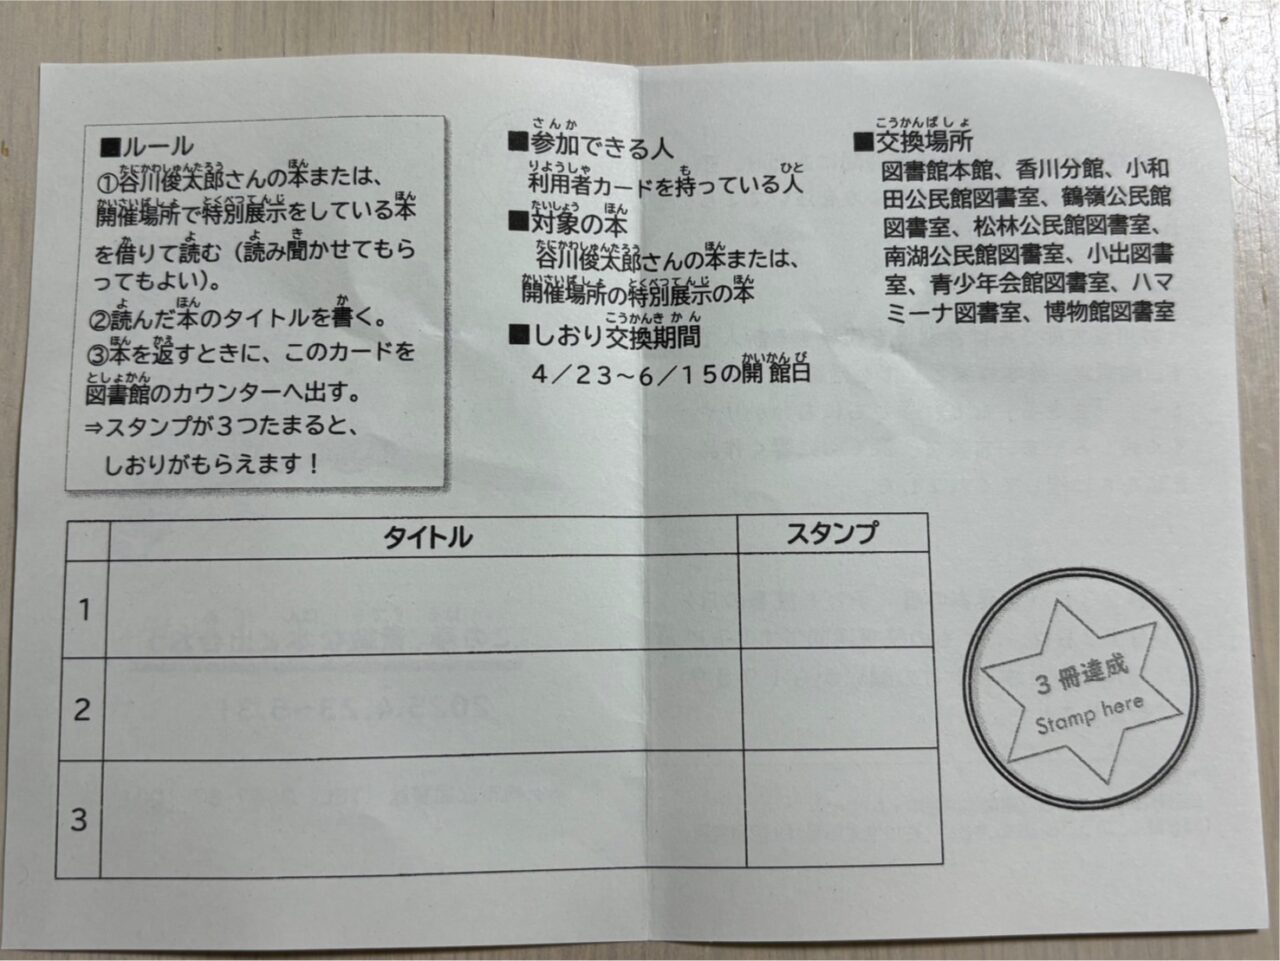 ■ルール
①谷川俊太郎さんの本または、
開催場所で特別展示をしている本
を借りて読む（読み聞かせてもら
ってもよい）。
②読んだ本のタイトルを書く。
③本を返すときに、このカードを
図書館のカウンターへ出す。
⇒スタンプが３つたまると、
しおりがもらえます！
■参加できる人
利用者カードを持っている人
■対象の本
谷川俊太郎さんの本または、
開催場所の特別展示の本
■しおり交換期間
４／２３～６／１５の開館日
■交換場所
図書館本館、香川分館、小和
田公民館図書室、鶴嶺公民館
図書室、松林公民館図書室、
南湖公民館図書室、小出図書
室、青少年会館図書室、ハマ
ミーナ図書室、博物館図書室
タイトル スタンプ
1
2
3
３冊達成
Stamp here